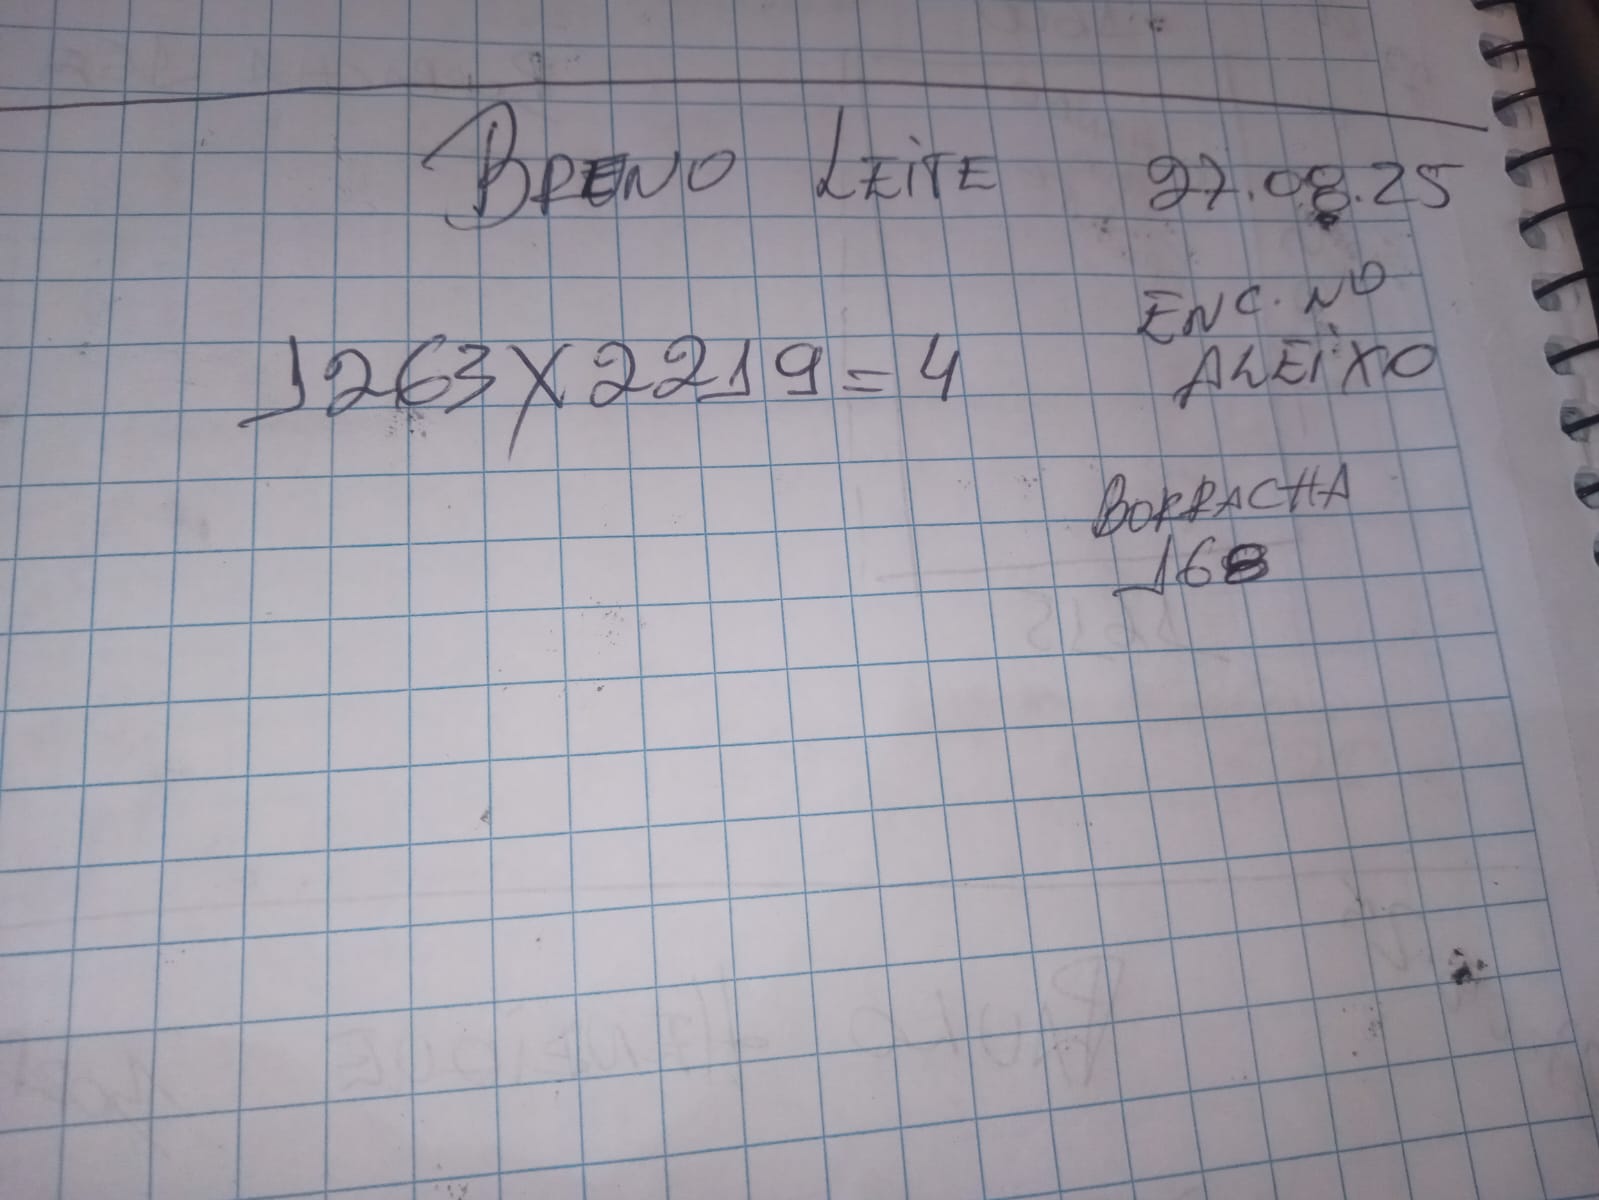 BRENO LEITE 27.08.25
ENC. NO
1263X2219=4 ALEIXO
BORRACHA
168